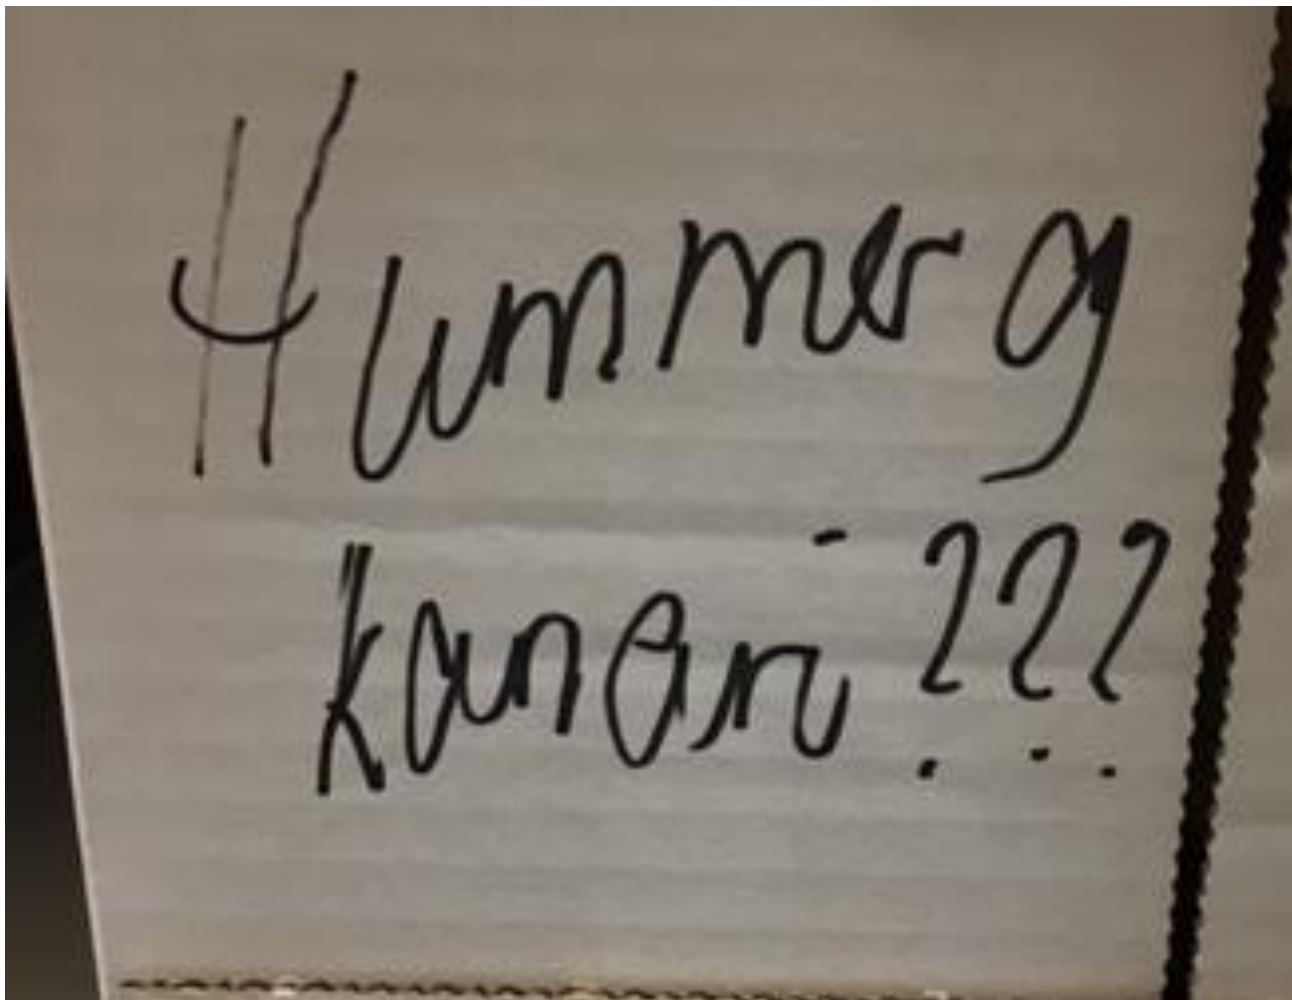 Hummer og
kanari???